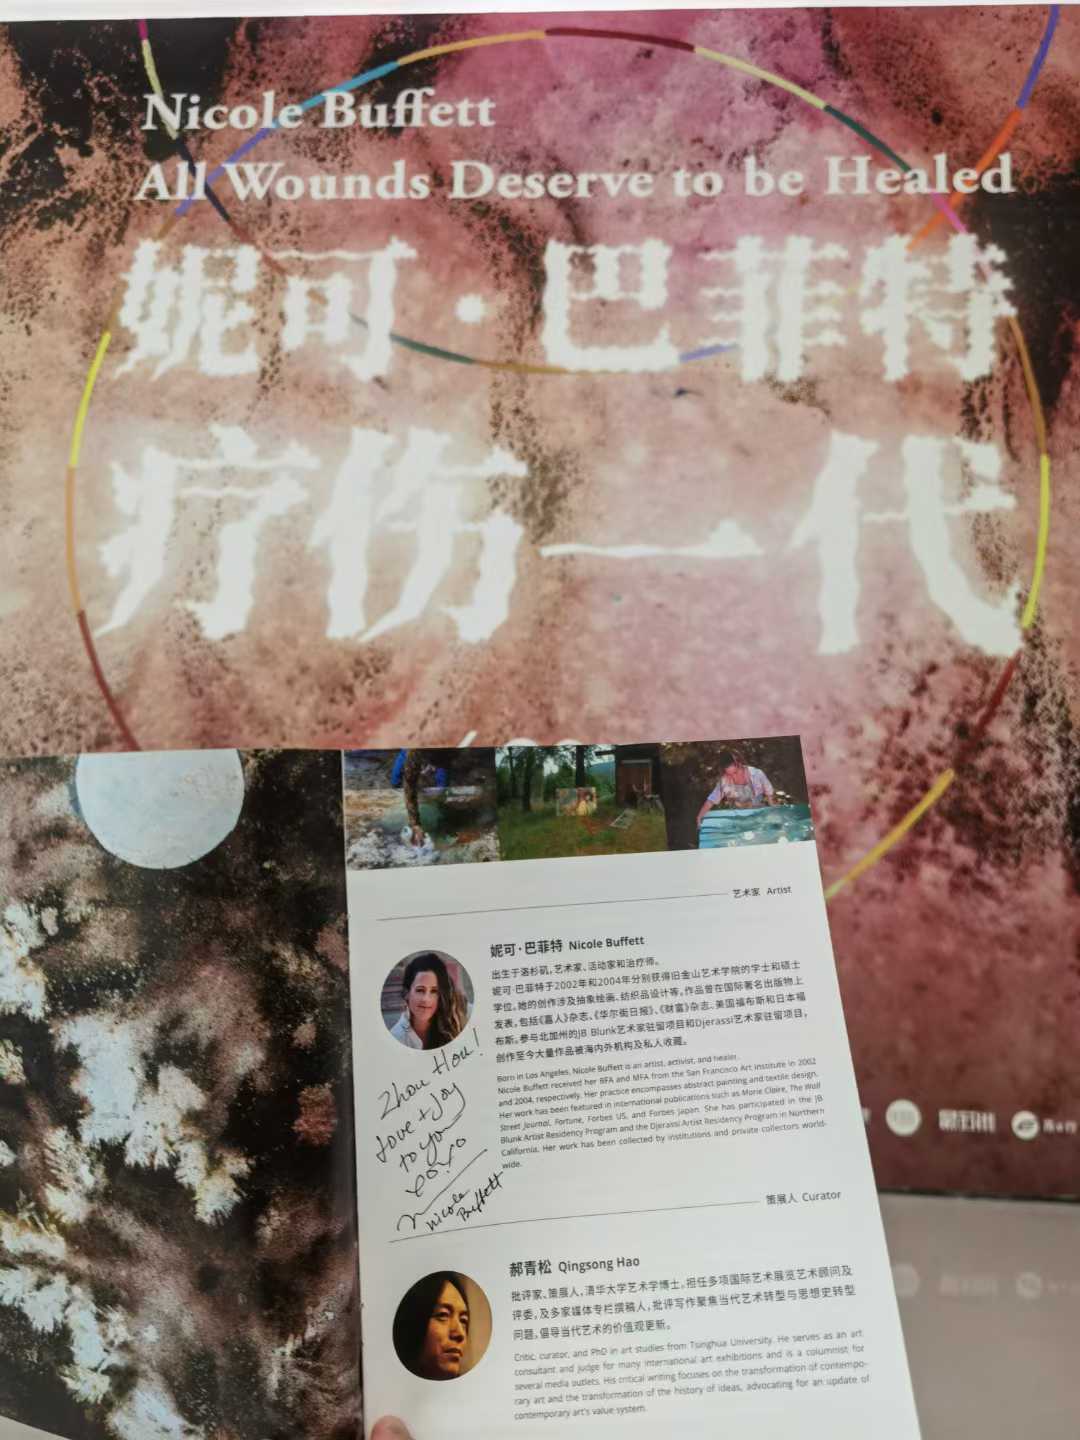 Nicole Buffett
All Wounds Deserve to be Healed
妮可·巴菲特
疗伤一代
艺术家 Artist
妮可·巴菲特 Nicole Buffett
出生于洛杉矶,艺术家、活动家和治疗师。
妮可·巴菲特于2002年和2004年分别获得旧金山艺术学院的学士和硕士
学位。她的创作涉及抽象绘画、纺织品设计等。作品曾在国际著名出版物上
发表,包括《嘉人》杂志、《华尔街日报》、《财富》杂志、美国福布斯和日本福
布斯。参与北加州的JB Blunk艺术家驻留项目和Djerassi艺术家驻留项目,
创作至今大量作品被海内外机构及私人收藏。
Born in Los Angeles, Nicole Buffett is an artist, activist, and healer.
Nicole Buffett received her BFA and MFA from the San Francisco Art Institute in 2002
and 2004, respectively. Her practice encompasses abstract painting and textile design.
Her work has been featured in international publications such as Marie Claire, The Wall
Street Journal, Fortune, Forbes US, and Forbes Japan. She has participated in the JB
Blunk Artist Residency Program and the Djerassi Artist Residency Program in Northern
California. Her work has been collected by institutions and private collectors world-
wide.
Zhou Hou!
Love + Joy
to you
xoxo
Nicole
Buffett
策展人 Curator
郝青松 Qingsong Hao
批评家、策展人,清华大学艺术学博士。担任多项国际艺术展览艺术顾问及
评委,及多家媒体专栏撰稿人,批评写作聚焦当代艺术转型与思想史转型
问题,倡导当代艺术的价值观更新。
Critic, curator, and PhD in art studies from Tsinghua University. He serves as an art
consultant and judge for many international art exhibitions and is a columnist for
several media outlets. His critical writing focuses on the transformation of contempo-
rary art and the transformation of the history of ideas, advocating for an update of
contemporary art's value system.